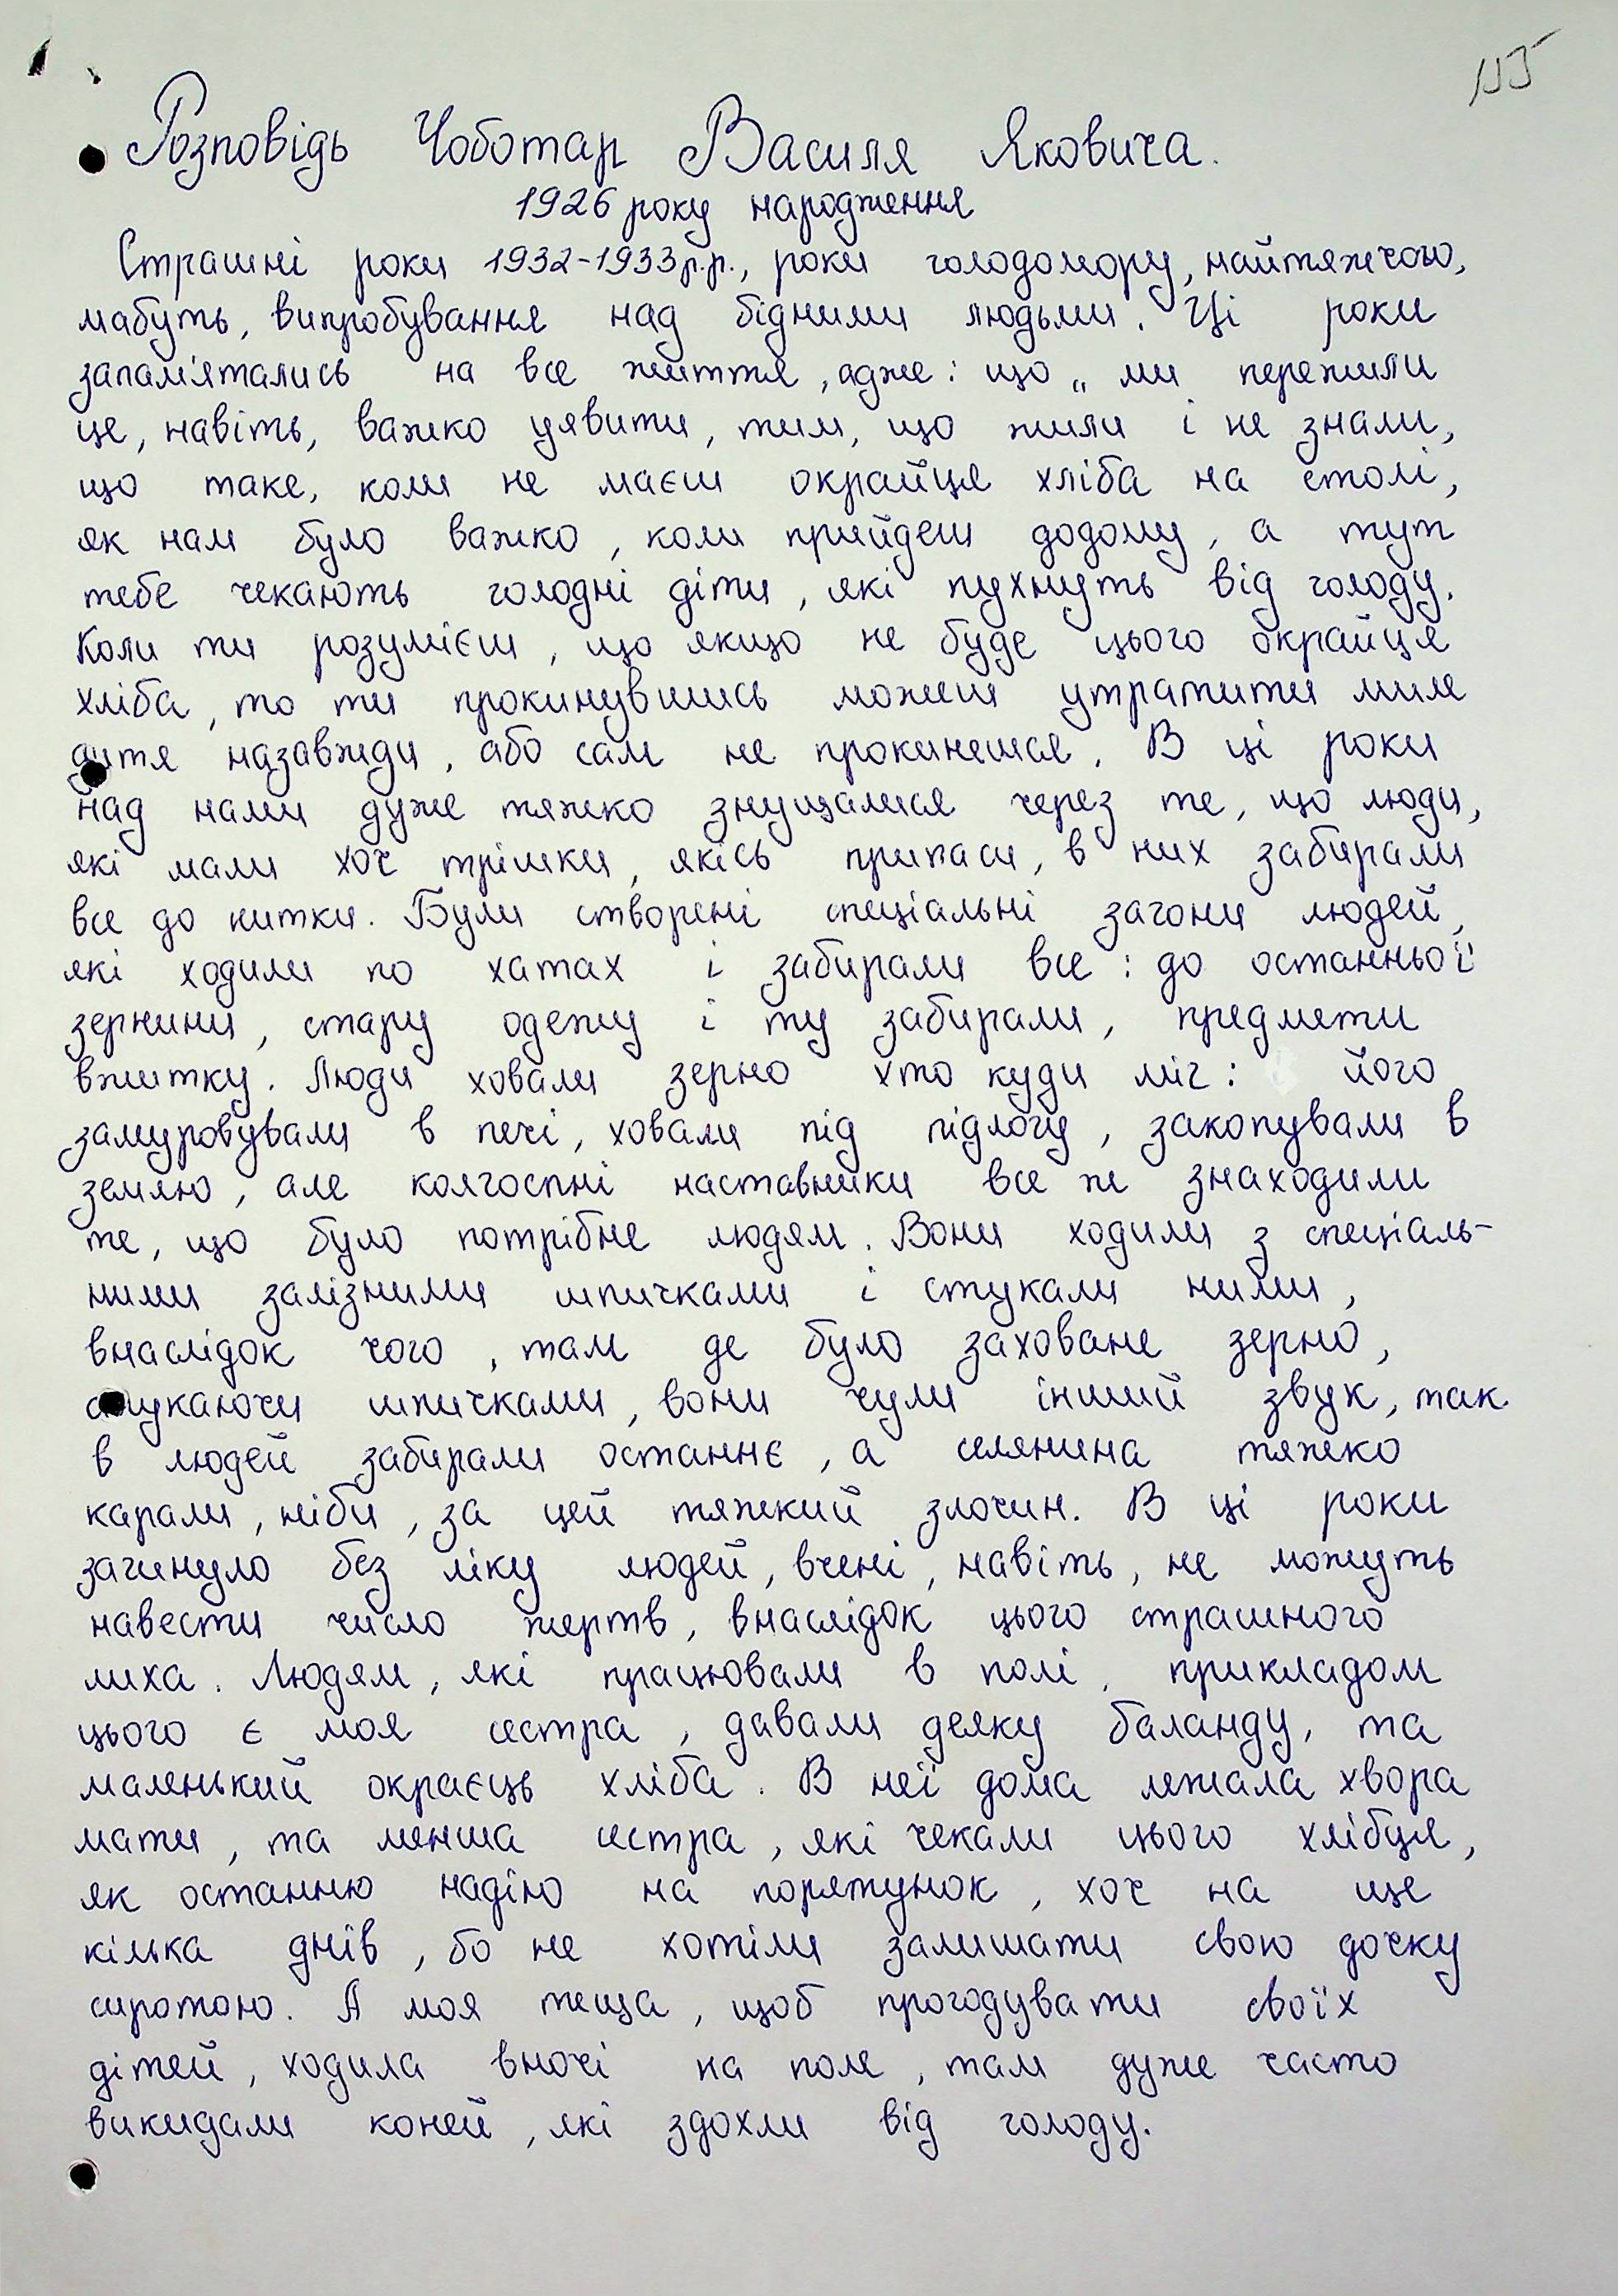 115
Розповідь Чоботар Василя Яковича.
1926 року народження
Страшні роки 1932-1933р.р., роки голодомору, найтяжчого,
мабуть, випробування над бідними людьми. Ці роки
запам'ятались на все життя, адже: що „ ми пережили
це, навіть, важко уявити, тим, що жили і не знали,
що таке, коли не маєш окрайця хліба на столі,
як нам було важко, коли прийдеш додому, а тут
тебе чекають голодні діти, які пухнуть від голоду.
Коли ти розумієш, що якщо не буде цього окрайця
хліба, то ти прокинувшись можеш утратити миле
дитя назавжди, або сам не прокинешся. В ці роки
над нами дуже тяжко знущалися через те, що люди,
які мали хоч трішки, якісь припаси, в них забирали
все до нитки. Були створені спеціальні загони людей,
які ходили по хатах і забирали все: до останньої
зернини, стару одежу і ту забирали, предмети
вжитку. Люди ховали зерно хто куди міг: його
замуровували в печі, ховали під підлогу, закопували в
землю, але колгоспні наставники все ж знаходили
те, що було потрібне людям. Вони ходили з спеціаль-
ними залізними шпичками і стукали ними,
внаслідок чого, там де було заховане зерно,
стукаючи шпичками, вони чули інший звук, так
в людей забирали останнє, а селянина тяжко
карали, ніби, за цей тяжкий злочин. В ці роки
загинуло без ліку людей, вчені, навіть, не можуть
навести число жертв, внаслідок цього страшного
лиха. Людям, які працювали в полі, прикладом
цього є моя сестра, давали деяку баланду, та
маленький окраєць хліба. В неї дома лежала хвора
мати, та менша сестра, які чекали цього хлібця,
як останню надію на порятунок, хоч на ще
кілька днів, бо не хотіли залишати свою дочку
сиротою. А моя теща, щоб прогодувати своїх
дітей, ходила вночі на поле, там дуже часто
викидали коней, які здохли від голоду.